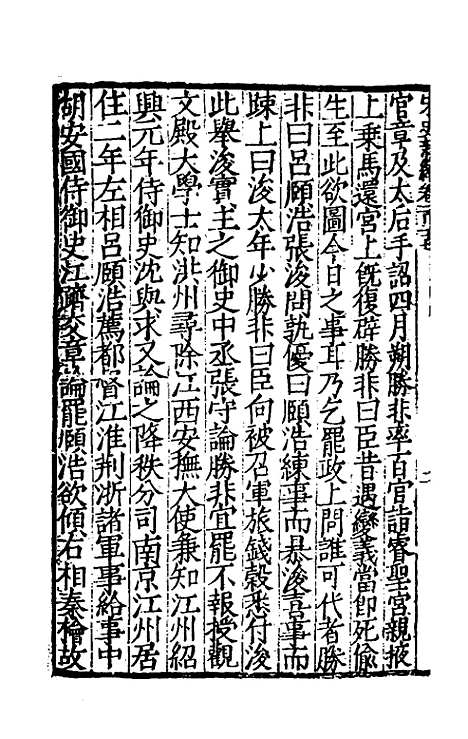 官章及太后手詔四月朔勝非率百官詣睿聖宮親掖
上乗馬還宮上旣復辟勝非曰臣昔遇變義當即死偷
生至此欲圖今日之事耳乃乞罷政上問誰可代者勝
非曰呂頤浩張浚問孰優曰頤浩練事而暴浚喜事而
踈上曰浚太年少勝非曰臣向被召軍旅錢榖悉付浚
此舉浚實主之御史中丞張守論勝非宜罷不報授觀
文殿大學士知洪州尋除江西安撫大使兼知江州紹
興元年侍御史沈與求又論之降秩分司南京江州居
住二年左相呂頤浩薦都督江淮荆浙諸軍事給事中
胡安國侍御史江躋交章論罷頤浩欲傾右相秦檜故